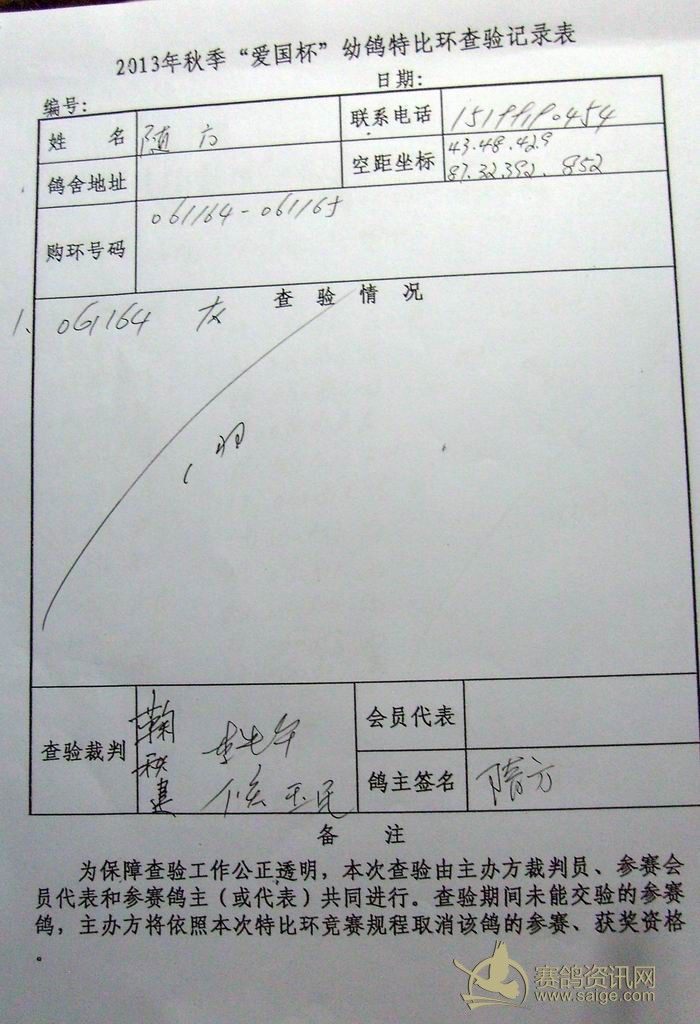 2013年秋季“爱国杯”幼鸽特比环查验记录表
编号:
日期:
姓 名
随方
联系电话
鸽舍地址
空距坐标
43.48.429
87.32392.852
购环号码
061164-061165
查 验 情 况
1、 061164 灰
1羽
查验裁判
鞠秋建
侯玉民
会员代表
鸽主签名
隋方
备 注
为保障查验工作公正透明，本次查验由主办方裁判员、参赛会
员代表和参赛鸽主（或代表）共同进行。查验期间未能交验的参赛
鸽，主办方将依照本次特比环竞赛规程取消该鸽的参赛、获奖资格
。
赛鸽资讯网
www.saige.com